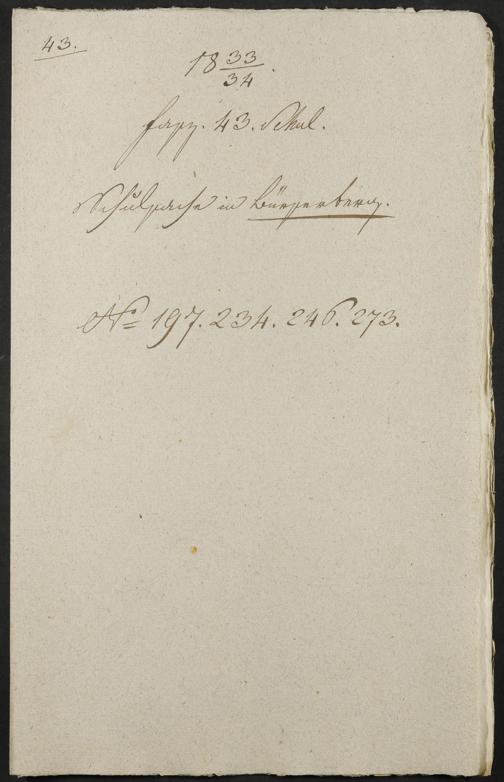 43.
18 33/34.
Fasz. 43. Schul.
Schulsache in Bürserberg.
No 197. 234. 246. 273.